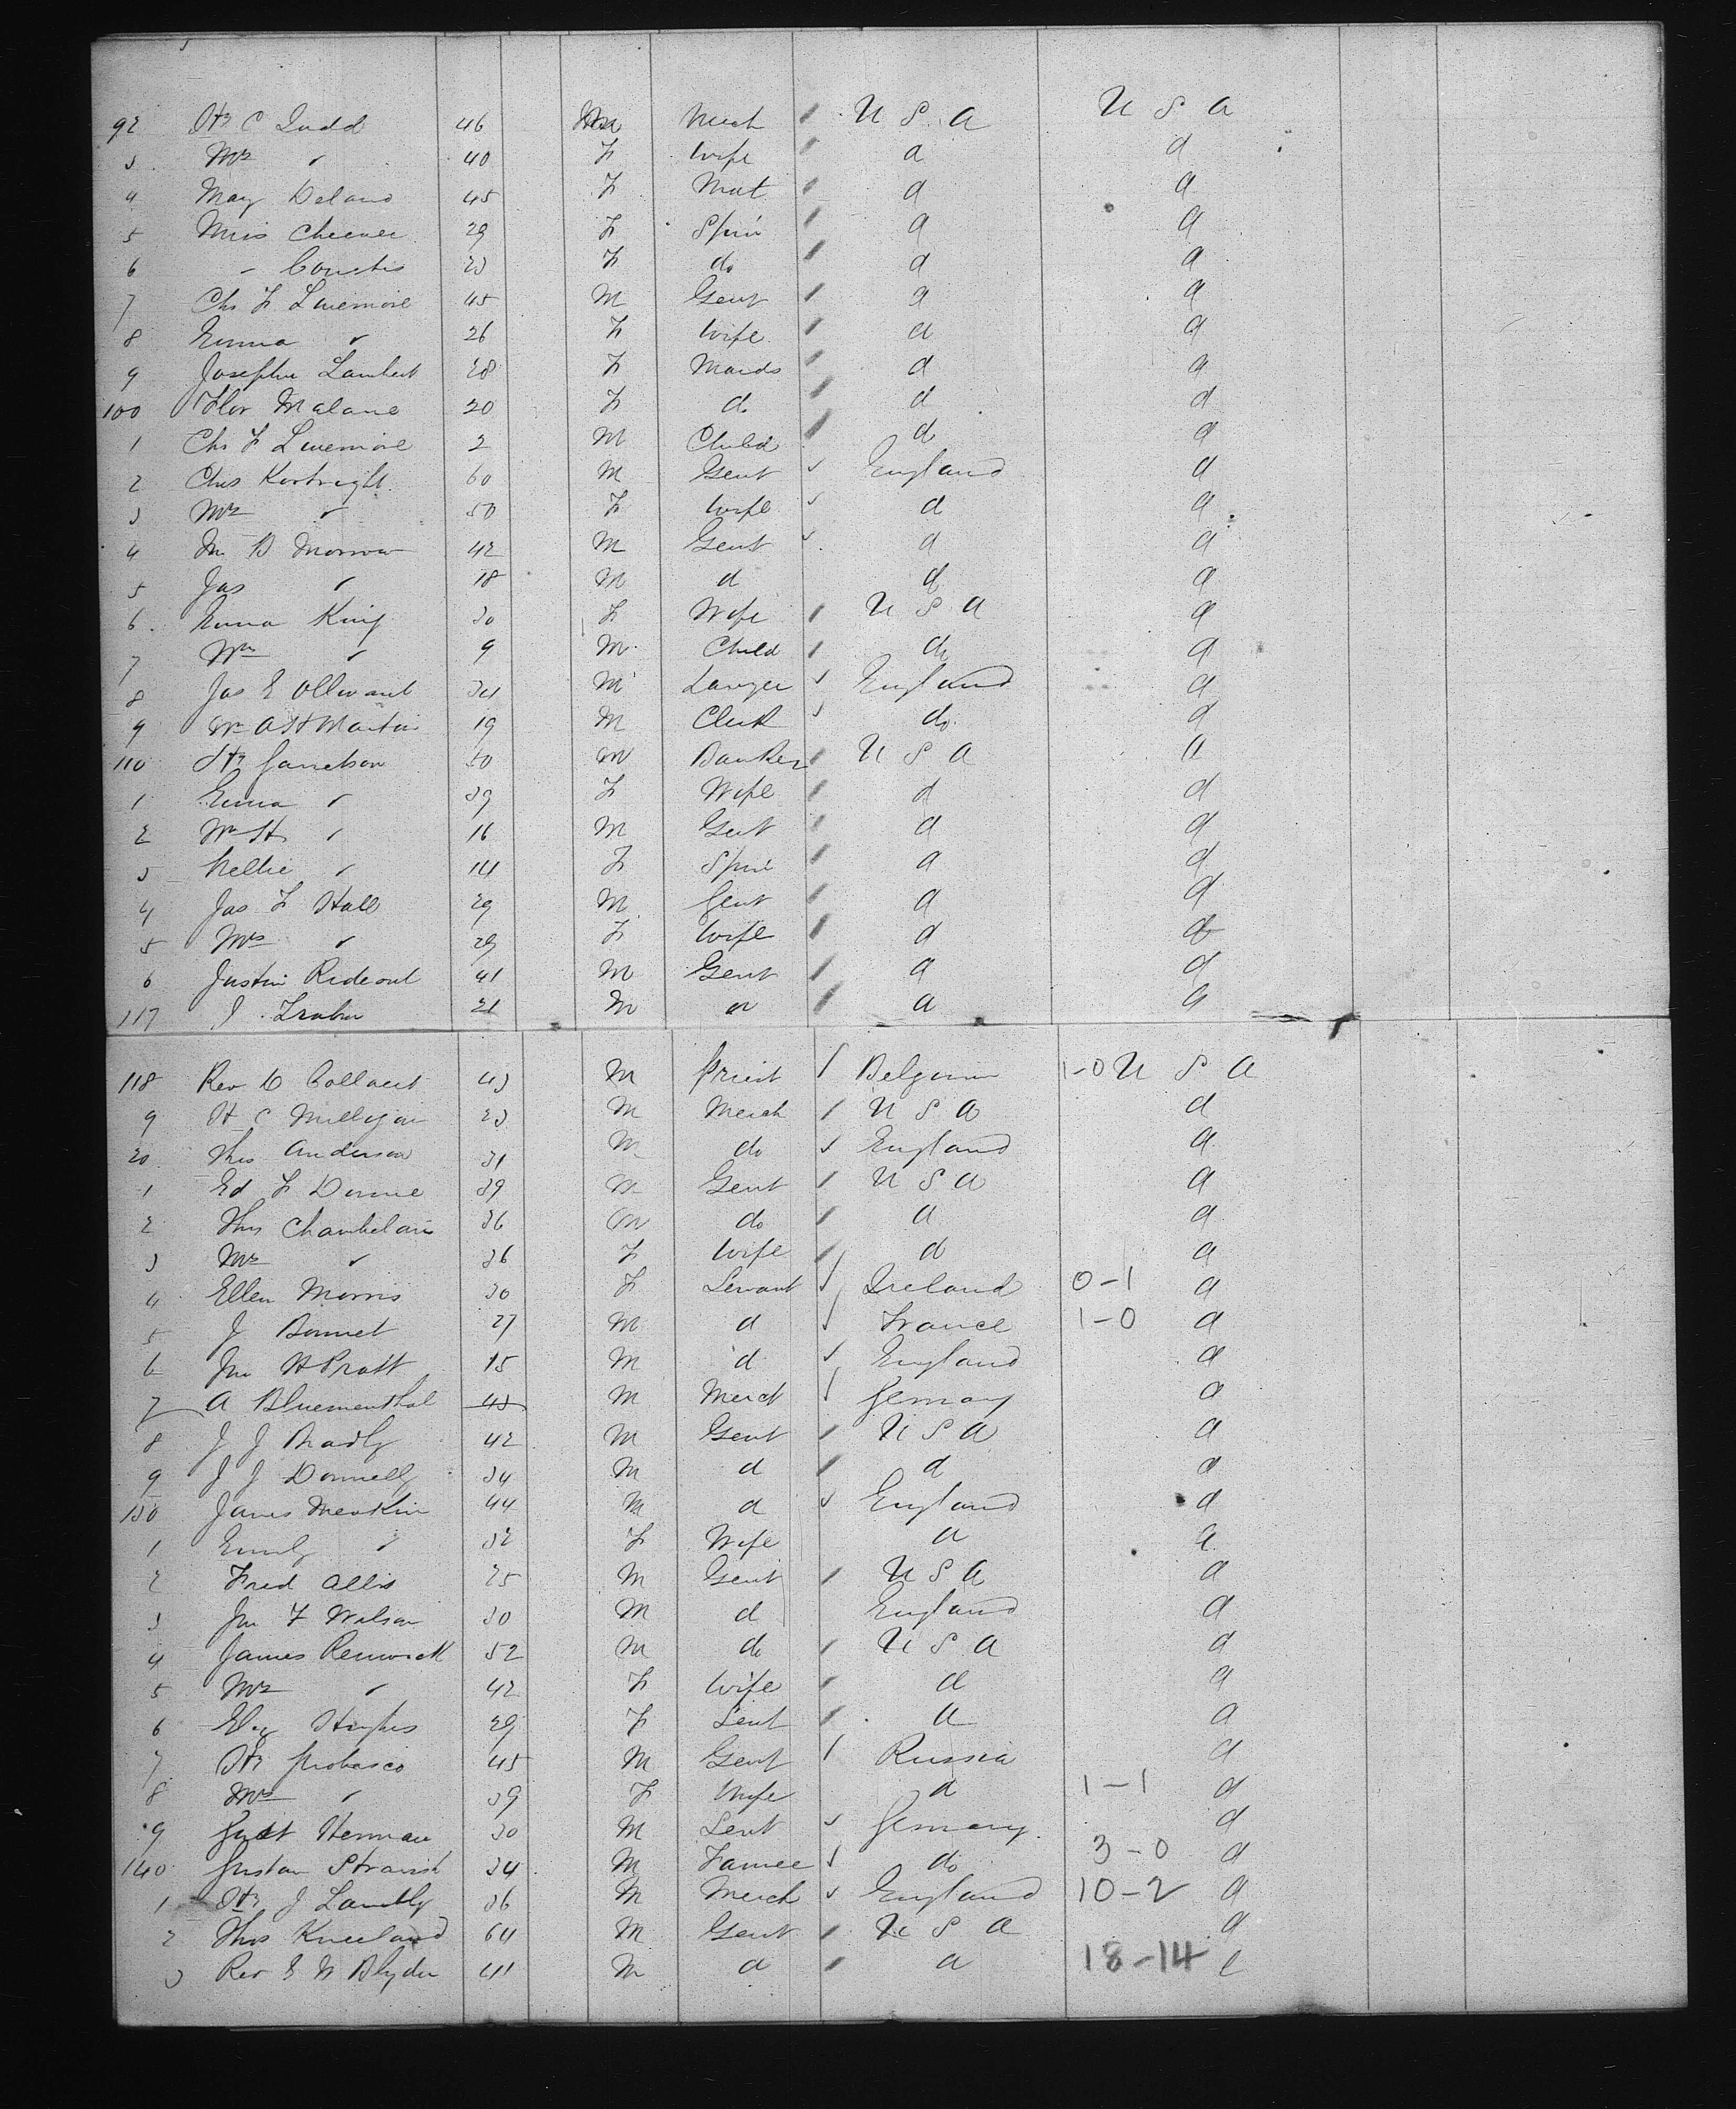 92 Hy C Judd 46 M Mech U S A U S A
3 Mrs " 40 F Wife d d
4 May Deland 45 F Mat d d
5 Miss Cheever 29 F Spin d d
6 " 23 F do d d
7 Chs F Livermore 45 M Gent d d
8 Emma " 26 F Wife d d
9 Josephe Lambert 28 F Maids d d
100 Flor Malane 20 F do d d
1 Chs F Livermore 2 M Child do d
2 Chs Kortright 60 M Gent England d
3 Mrs " 50 F Wife d d
4 Jno B Morrow 42 M Gent d d
5 Jas " 18 M d do d
6 Emma King 30 F Wife U S A d
7 Wm " 9 M Child do d
8 Jas E Ollivant 34 M Lawyer England d
9 Wm A H Martin 19 M Clerk do d
110 Hy Garretson 50 M Banker U S A d
1 Emma " 39 F Wife d d
2 Wm H " 16 M Gent d d
3 Nellie " 14 F Spin d d
4 Jas F Hall 29 M Gent d d
5 Mrs " 29 F Wife d d
6 Justin Rideout 41 M Gent d d
117 J 21 M d d d
118 Rev D Collaert 43 M Priest Belgium 1-0 U S A
9 H C Milligan 23 M Merch U S A d
20 Thos Anderson 31 M do England d
1 Ed F Dorme 39 M Gent U S A d
2 Thos Chambelain 36 M do d d
3 Mrs " 36 F Wife d d
4 Ellen Morris 30 F Servant Ireland 0-1 d
5 J Bonnet 27 M d France 1-0 d
6 Jno H Pratt 15 M d England d
7 A Bluementhal 43 M Merch Germany d
8 J J Bradly 42 M Gent U S A d
9 J J Donnelly 34 M d d d
130 James Meakin 44 M d England d
1 Emily " 32 F Wife d d
2 Fred Allis 25 M Gent U S A d
3 Jno F Wilson 30 M d England d
4 James Renwick 52 M do U S A d
5 Mrs " 42 F Wife d d
6 Eliz Hughes 29 F Sevt d d
7 Hy Probasco 45 M Gent Russia d
8 Mrs " 39 F Wife d 1-1 d
9 Gust Herman 30 M Sevt Germany d
140 Gustav 34 M Farmer do 3-0 d
1 Hy J Lambly 36 M Merch England 10-2 d
2 Thos Kneeland 64 M Gent U S A d
3 Rev E W Blyden 41 M d d 18-14